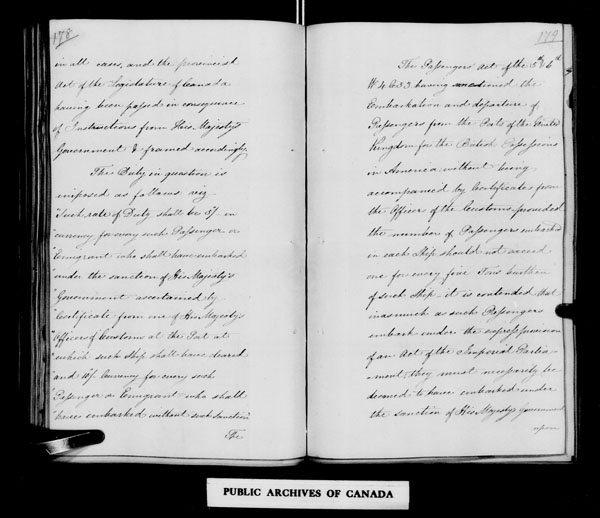 178
in all cases, and the provincial
Act of the Legislature of Canada
having been passed in consequence
of Instructions from His Majesty's
Government & framed accordingly.
The Duty in question is
imposed as follows viz
"Such rate of Duty shall be 5/- in
"currency for every such Passenger or
"Emigrant who shall have embarked
"under the sanction of His Majesty's
"Government ascertained by
"Certificate from one of His Majesty's
"Officers of Customs at the Port at
"which such Ship shall have cleared
"and 10/. Currency for every such
"Passenger or Emigrant who shall
"have embarked without such Sanction"
The
179
The Passengers Act of the 5th & 6th
W 4 C 53 having sanctioned the
Embarkation and departure of
Passengers from the Ports of the United
Kingdom for the British Possessions
in America without being
accompanied by Certificates from
the Officer of the Customs, provided
the number of Passengers embarked
in each Ship should not exceed
one for every five Tons burthen
of such Ship - it is contended that
inasmuch as such Passengers
embark under the express provision
of an Act of the Imperial Parlia-
-ment they must necessarily be
deemed to have embarked under
the sanction of His Majesty's Government
upon
PUBLIC ARCHIVES OF CANADA